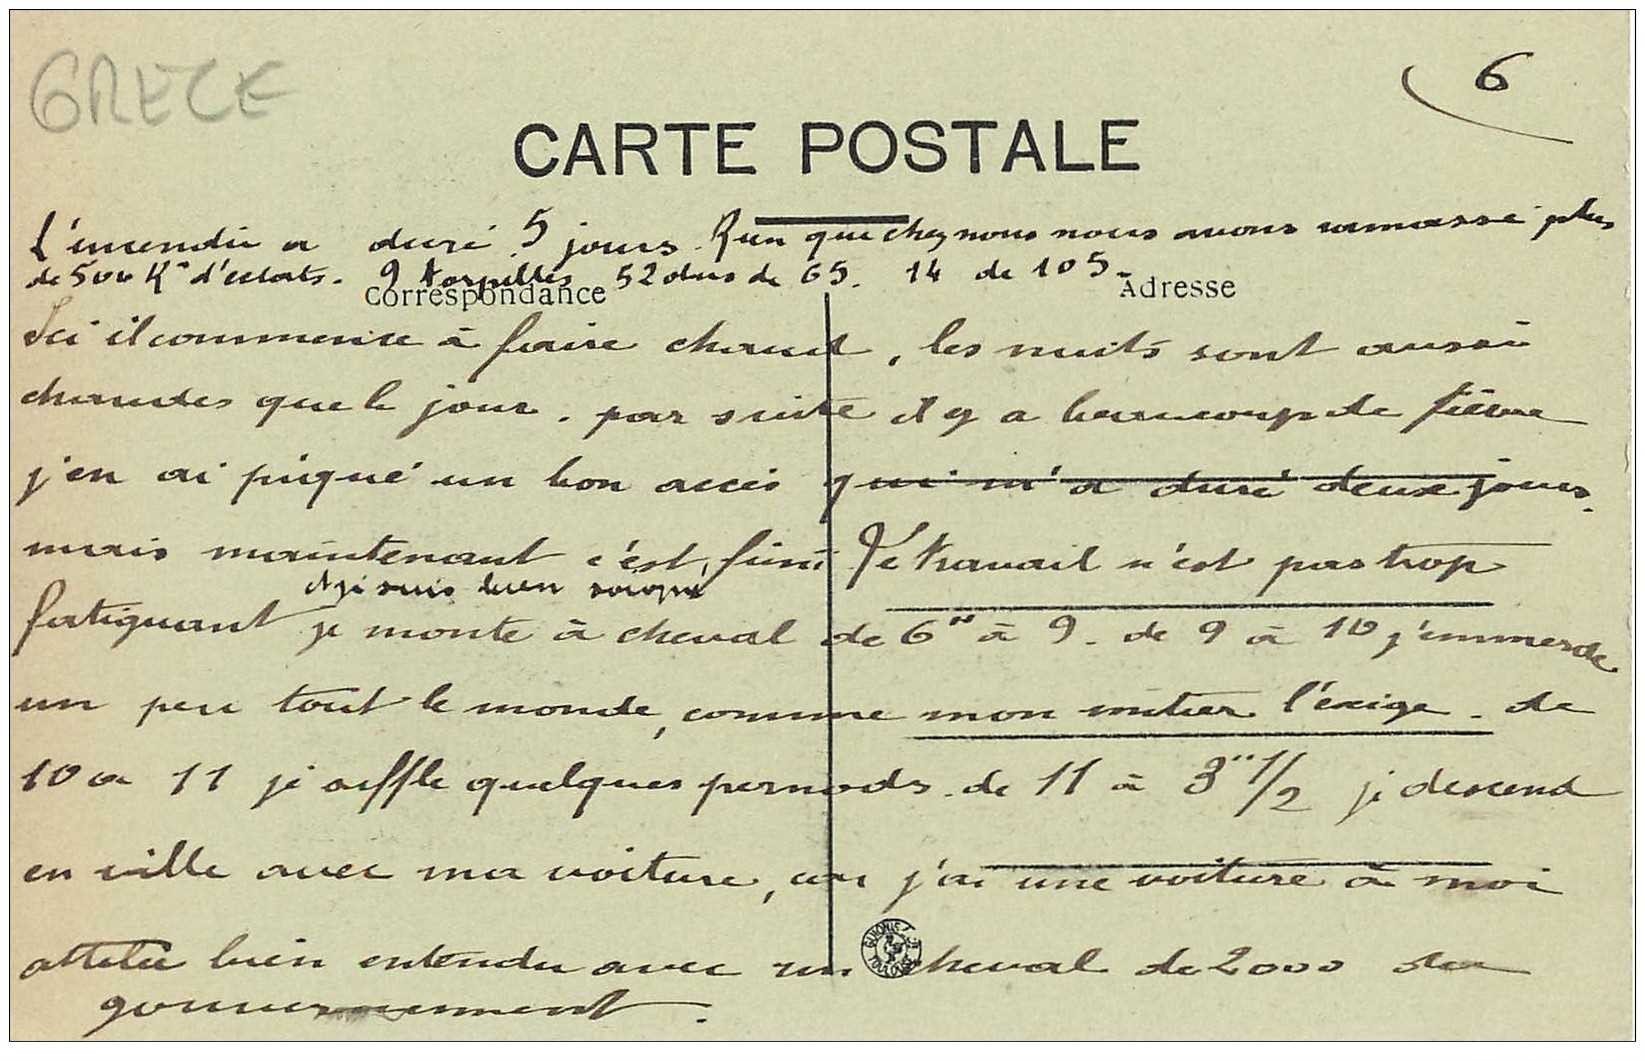 GRECE
6
CARTE POSTALE
L'incendie a duré 5 jours. Rien que chez nous nous avons ramassé plus
de 500 Kos d'éclats. 9 torpilles 52 obus de 65. 14 de 105.
Correspondance
Adresse
Ici il commence à faire chaud, les nuits sont aussi
chaudes que le jour. par suite il y a beaucoup de fièvre
j'en ai piqué un bon accès qui m'a duré deux jours.
mais maintenant c'est fini Le travail n'est pas trop
et je suis bien soigné
fatiguant je monte à cheval de 6h à 9. de 9 à 10 j'emmerde
un peu tout le monde, comme mon métier l'éxige. de
10 a 11 je siffle quelques pernods. de 11 à 3h 1/2 je descend
en ville avec ma voiture, car j'ai une voiture à moi
attelée bien entendu avec un cheval de 2000 du
gouvernement.
TOULOUSE